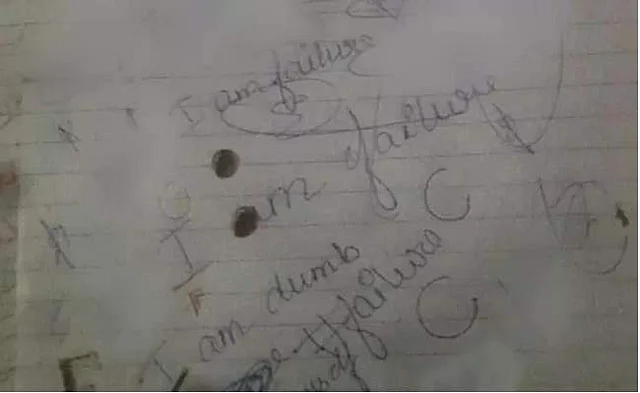 I am failure
I am failure
I am dumb
failure